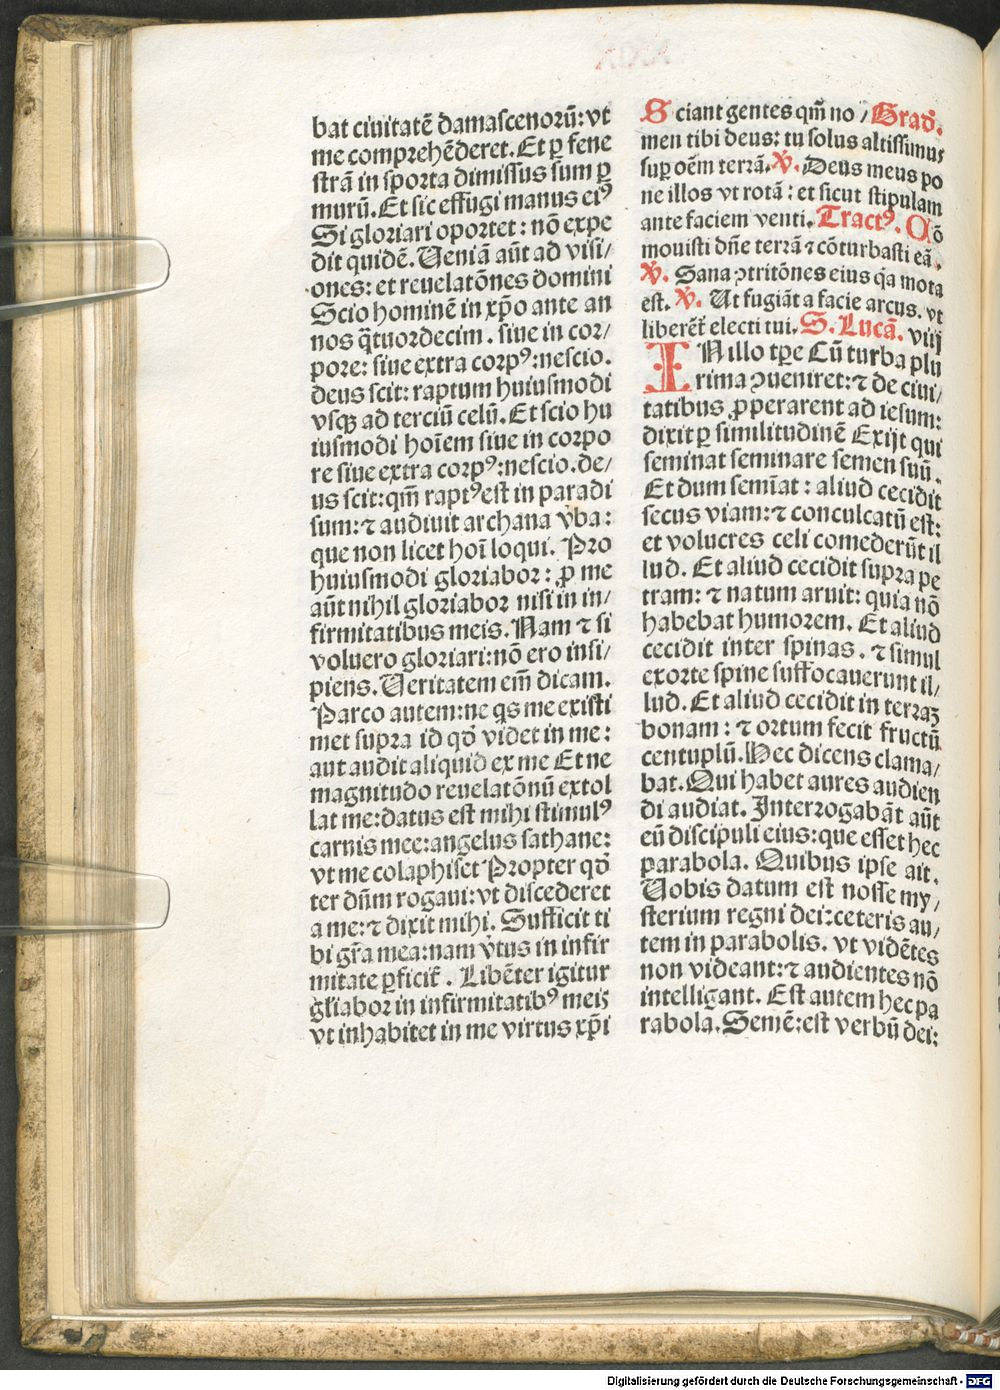 bat ciuitatē damascenorū: vt
me comprehēderet. Et ꝑ fene
strā in sporta dimissus sum ꝑ
murū. Et sic effugi manus eiꝰ
Si gloriari oportet: nō expe
dit quidē. Ueniā aūt ad visi/
ones: et reuelatōnes domini
Scio hominē in xp̄o ante an
nos q̄tuordecim. siue in cor/
pore: siue extra corpꝰ: nescio.
deus scit: raptum huiusmodi
vsqꝫ ad terciū celū. Et scio hu
iusmodi hoīem siue in corpo
re siue extra corpꝰ: nescio. de/
us scit: qm̄ raptꝰ est in paradi
sum: ⁊ audiuit archana v̄ba:
que non licet hoī loqui. Pro
huiusmodi gloriabor: ꝓ me
aūt nihil gloriabor nisi in in/
firmitatibus meis. Nam ⁊ si
voluero gloriari: nō ero insi/
piens. Ueritatem em̄ dicam.
Parco autem: ne qs me existi
met supra id qd̄ videt in me:
aut audit aliquid ex me Et ne
magnitudo reuelatōnū extol
lat me: datus est mihi stimulꝰ
carnis mee: angelus sathane:
vt me colaphiset Propter qd̄
ter dūm rogaui: vt discederet
a me: ⁊ dixit mihi. Sufficit ti
bi gr̄a mea: nam v̄tus in infir
mitate ꝑficit̄. Libēter igitur
gl̄iabor in infirmitatibꝰ meis
vt inhabitet in me virtus xp̄i
Sciant gentes qm̄ no / Gradꝰ.
men tibi deus: tu solus altissimus
suꝑ oēm terrā. ℣. Deus meus po
ne illos vt rotā: et sicut stipulam
ante faciem venti. Tractꝰ. Cō
mouisti dn̄e terrā ⁊ cōturbasti eā.
℣. Sana ꝯtritōnes eius q̄a mota
est. ℣. Ut fugiāt a facie arcus. vt
liberēt̄ electi tui. S. Lucā. viij
IN illo tꝑe Cū turba plu
rima ꝯueniret: ⁊ de ciui/
tatibus ꝓperarent ad iesum:
dixit ꝑ similitudinē Exijt qui
seminat seminare semen suū.
Et dum semīat: aliud cecidit
secus viam: ⁊ conculcatū est:
et volucres celi comederūt il
lud. Et aliud cecidit supra pe
tram: ⁊ natum aruit: quia nō
habebat humorem. Et aliud
cecidit inter spinas. ⁊ simul
exorte spine suffocauerunt il/
lud. Et aliud cecidit in terraꝫ
bonam: ⁊ ortum fecit fructū
centuplū. Hec dicens clama/
bat. Qui habet aures audien
di audiat. Interrogabāt aūt
eū discipuli eius: que esset hec
parabola. Quibus ipse ait.
Uobis datum est nosse my/
sterium regni dei: ceteris au/
tem in parabolis. vt vidētes
non videant: ⁊ audientes nō
intelligant. Est autem hec pa
rabola. Semē: est verbū dei:
Digitalisierung gefördert durch die Deutsche Forschungsgemeinschaft - DFG